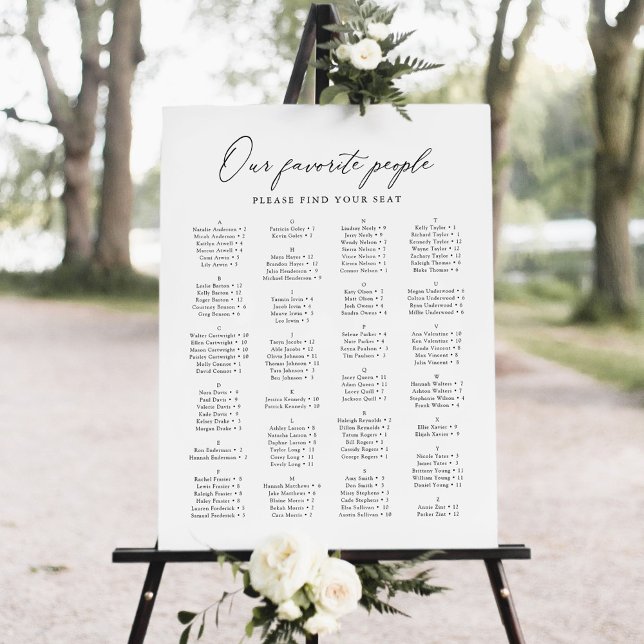 Our favorite people
PLEASE FIND YOUR SEAT
A
Natalie Anderson • 2
Micah Anderson • 2
Kaitlyn Atwell • 4
Marcus Atwell • 4
Cami Arwin • 4
Lily Arwin • 4
B
Leslie Barton • 12
Kelly Barton • 12
Roger Barton • 12
Courtney Benson • 6
Greg Benson • 6
C
Walter Cartwright • 10
Ellen Cartwright • 10
Mason Cartwright • 10
Paisley Cartwright • 10
Molly Connor • 1
David Connor • 1
D
Nora Davis • 9
Paul Davis • 9
Valerie Davis • 9
Kade Davis • 9
Kelsey Drake • 3
Morgan Drake • 3
E
Ron Enderman • 2
Hannah Enderman • 2
F
Rachel Frasier • 8
Lewis Frasier • 8
Raleigh Frasier • 8
Haley Frasier • 8
Lauren Frederick • 5
Samuel Frederick • 5
G
Patricia Goley • 7
Kevin Goley • 7
H
Maya Hayes • 12
Brandon Hayes • 12
Julio Henderson • 9
Michael Henderson • 9
I
Tamrin Irvin • 4
Jacob Irvin • 4
Mauve Irwin • 3
Leo Irwin • 3
J
Taryn Jacobs • 12
Aldo Jacobs • 12
Olivia Johnson • 11
Thomas Johnson • 11
Tara Johnson • 3
Ben Johnson • 3
K
Jessica Kennedy • 10
Patrick Kennedy • 10
L
Ashley Larson • 8
Natasha Larson • 8
Daphne Larson • 8
Taylor Long • 11
Corey Long • 11
Evenly Long • 11
M
Hannah Matthews • 6
Jake Matthews • 6
Blaine Morris • 2
Bekah Morris • 2
Cara Morris • 2
N
Lindsay Neely • 9
Jerry Neely • 9
Wendy Nelson • 7
Sierra Nelson • 7
Vince Nelson • 7
Kieran Nelson • 1
Connor Nelson • 1
O
Katy Olson • 7
Matt Olson • 7
Josh Owens • 4
Sandra Owens • 4
P
Selene Parker • 4
Nate Parker • 4
Reyna Paulson • 3
Tim Paulson • 3
Q
Jacey Queen • 11
Adam Queen • 11
Lacey Quill • 2
Jackson Quill • 2
R
Haleigh Reynolds • 2
Dillon Reynolds • 2
Tatum Rogers • 1
Bill Rogers • 1
Cassidy Rogers • 1
George Rogers • 1
S
Amy Smith • 9
Den Smith • 5
Missy Stephens • 5
Cade Stephens • 5
Elsa Sullivan • 10
Austin Sullivan • 10
T
Kelly Taylor • 1
Richard Taylor • 1
Kennedy Taylor • 12
Wayne Taylor • 12
Zachary Taylor • 12
Raleigh Thomas • 6
Blake Thomas • 6
U
Megan Underwood • 6
Colton Underwood • 6
Ryan Underwood • 6
Millie Underwood • 6
V
Ana Valentine • 10
Ken Valentine • 10
Ronda Vincent • 8
Max Vincent • 8
Julia Vincent • 8
W
Hannah Walters • 7
Ashton Walters • 7
Stephanie Wilson • 4
Frank Wilson • 4
X
Ellie Xavier • 9
Elijah Xavier • 9
Y
Nicole Yates • 3
James Yates • 3
Brittany Young • 5
William Young • 5
Daniel Young • 5
Z
Annie Zint • 12
Parker Zint • 12